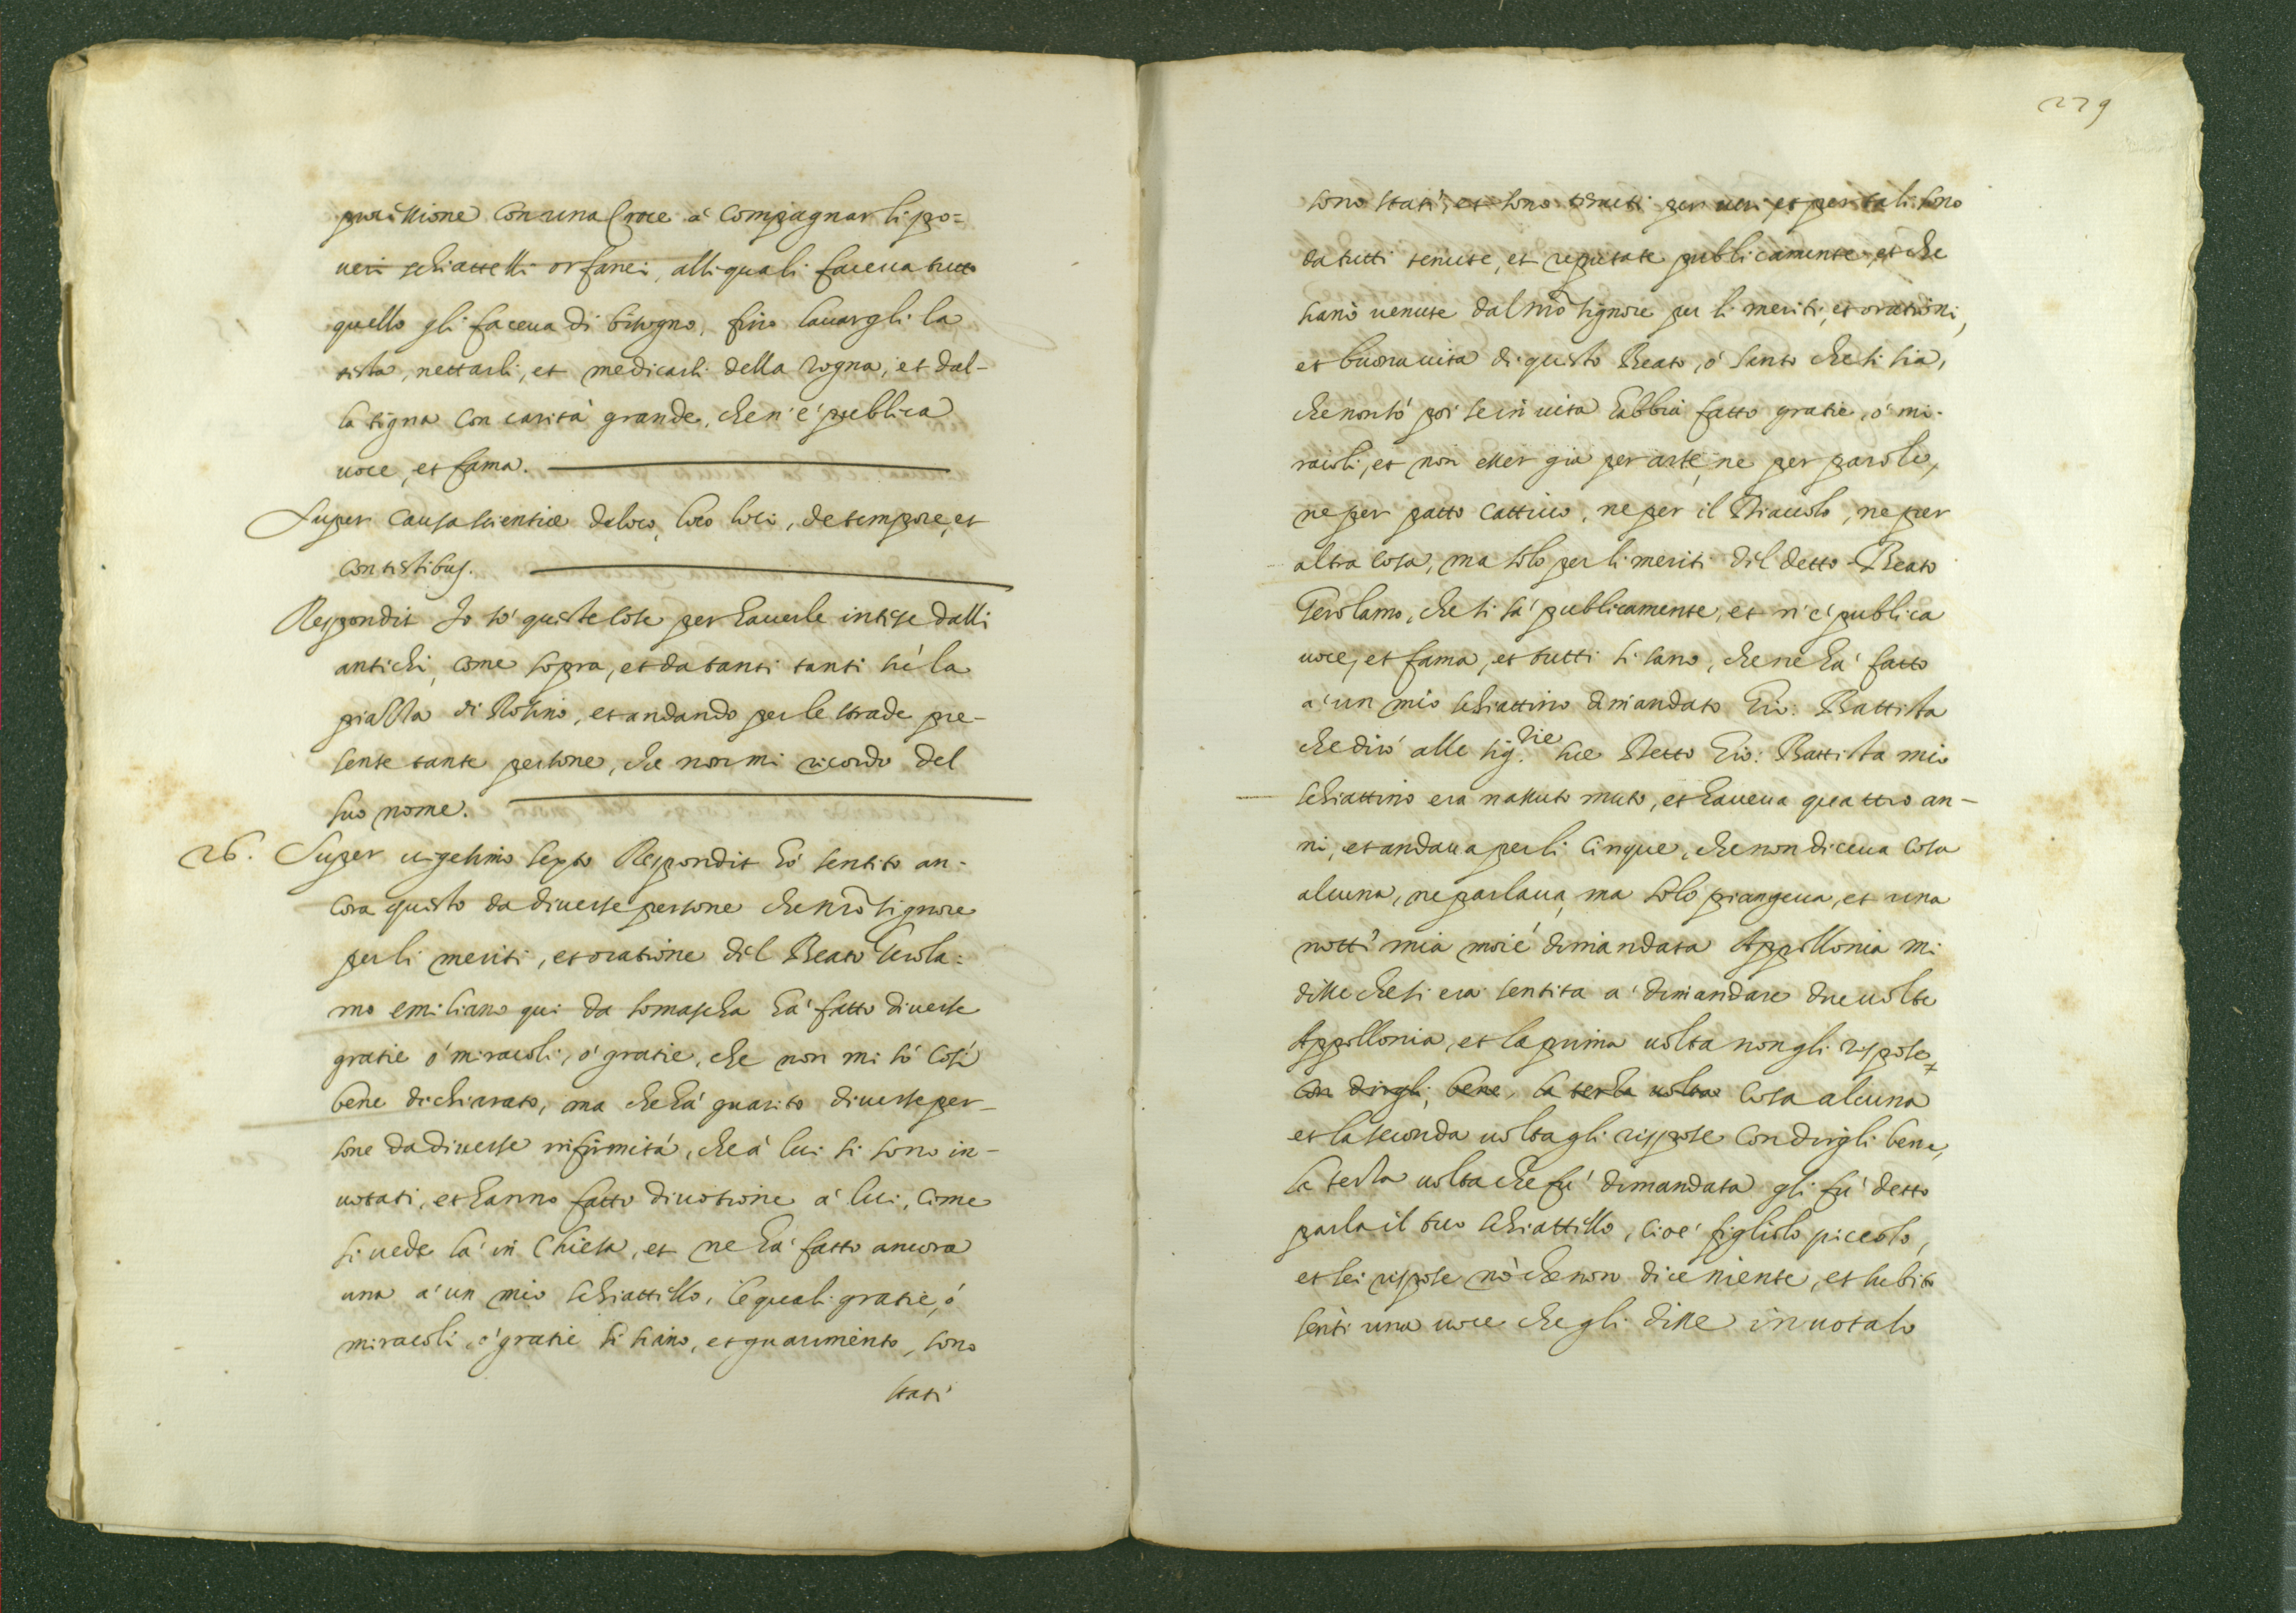 processione con una Croce a' compagnar li po=
veri schiattelli orfanei, alli quali faceva tutto
quello gli faceva di bisogno, fino lavargli la
testa, nettarli, et medicarli della rogna, et dal-
la tigna con carità grande, che n'e' publica
voce, et fama.
Super causa scientiæ de loco, loco loci, de tempore, et
contestibus.
Respondit Io so' queste cose per haverle intese dalli
antichi, come sopra, et da tanti tanti sù la
piazza di Rosino, et andando per le strade pre-
sente tante persone, che non mi ricordo del
suo nome.
26. Super vigesimo sexto Respondit hò sentito an-
cora questo da diverse persone che nrõ signore
per li meriti, et oratione dil Beato Gerola=
mo emiliano qui da somascha hà fatto diverse
gratie ò miracoli, ò gratie, che non mi sò così
bene dichiarato, ma che hà guarito diverse per-
sone da diverse infirmità, che à lui si sono in-
votati, et hanno fatto divotione à lui, come
si vede là in Chiesa, et ne hà fatto ancora
una à un mio schiattillo, le quali gratie, ò
miracoli, ò gratie si siano, et guarimento, sono
stati
229
sono stati, et sono tenuti per veri, et per tali sono
da tutti tenute, et reputate publicamente, et che
siano venute dal nrõ signore per li meriti, et orationi,
et buona vita di questo Beato, ò santo che si sia,
che non sò poi se in vita habbia fatto gratie, ò mi-
racoli, et non esser già per arte, ne per parole,
ne per patto cattivo, ne per il Diavolo, ne per
altra cosa, ma solo per li meriti dil detto Beato
Gerolamo, che si sà publicamente, et n'è publica
voce, et fama, et tutti li sano, che ne hà fatto
à un mio schiattino dimandato Gio: Battista
che dirò alle sig.rie sue Detto Gio: Battista mio
schiattino era nassuto muto, et haveva quattro an-
ni, et andava per li cinque, che non diceva cosa
alcuna, ne parlava, ma solo piangeva, et una
notti mia moiè dimandata Appollonia mi
disse che si era sentita à dimandare due volte
Appollonia, et la prima volta non gli rispose
con dirgli, bene, la terza volta cosa alcuna
et la seconda volta gli rispose con dirgli bene,
la terza volta che fù dimandata gli fù detto
parla il tuo schiattillo, cioè figliolo piccolo,
et lei rispose nò che non dice niente, et subito
sentì una voce che gli disse invotalo